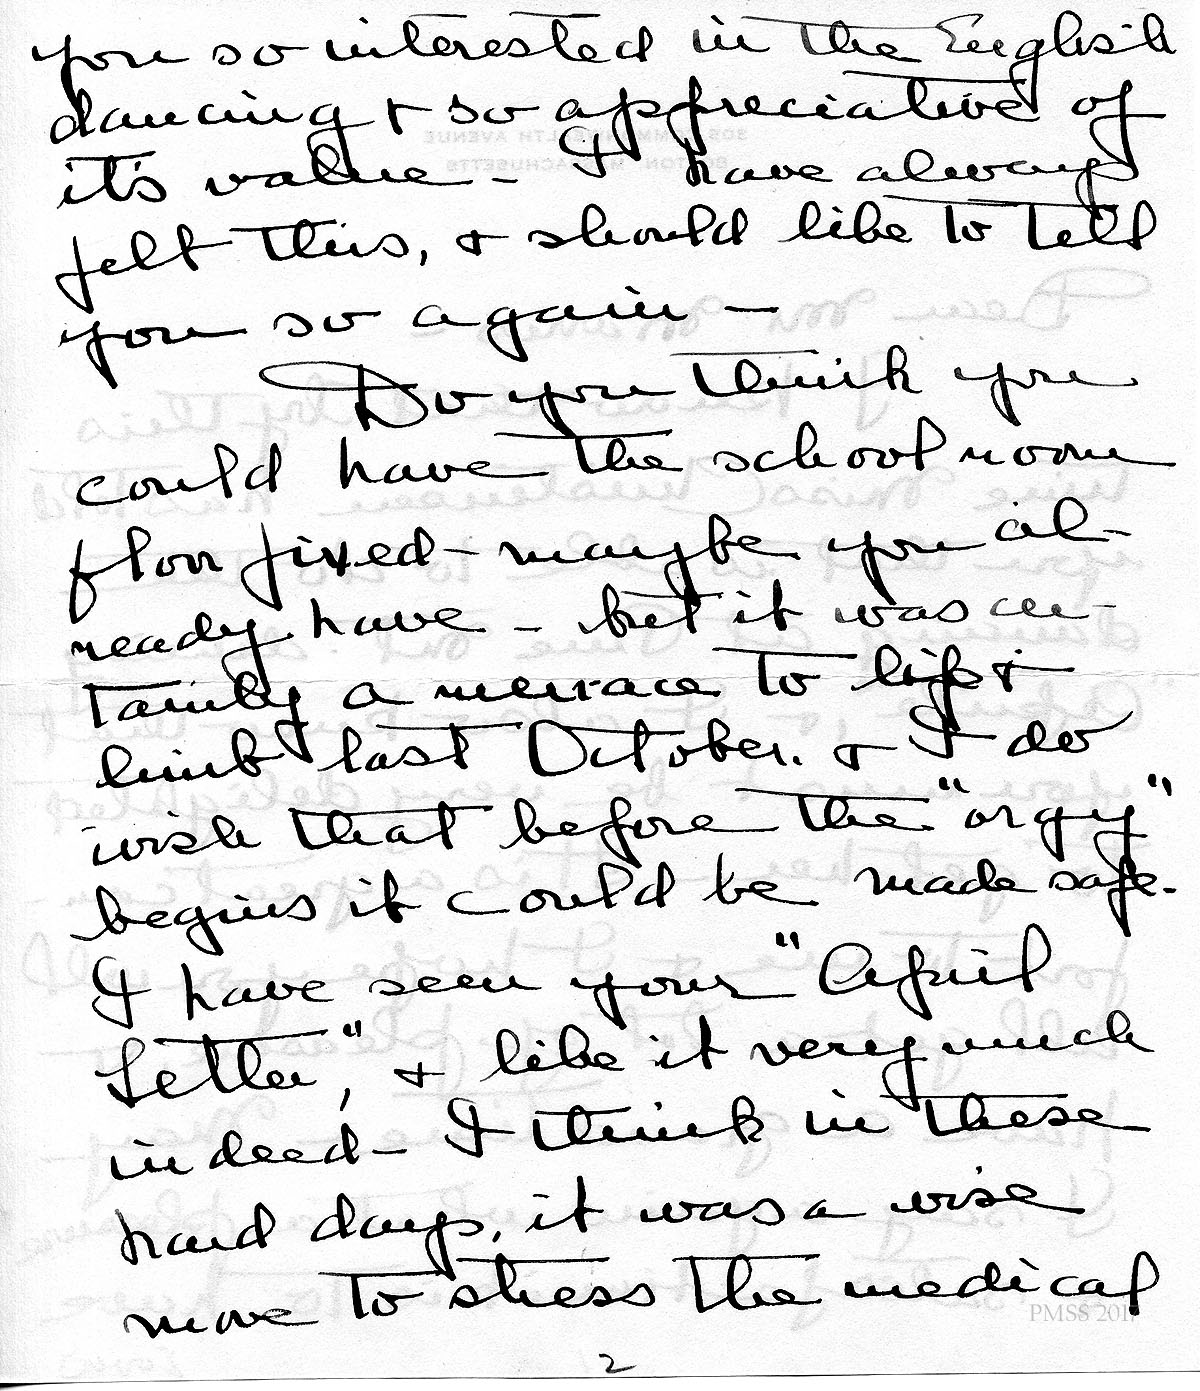 you so interested in the English
dancing & so appreciative of
it's value - I have always
felt this, & should like to tell
you so again -
Do you think you
could have the schoolroom
floor fixed - maybe you al-
ready have - but it was cer-
tainly a menace to life &
limb last October. & I do
wish that before the "orgy"
begins it could be made safe.
I have seen your "April
Letter", & like it very much
indeed - I think in these
hard days, it was a wise
move to stress the medical
PMSS 2017
2